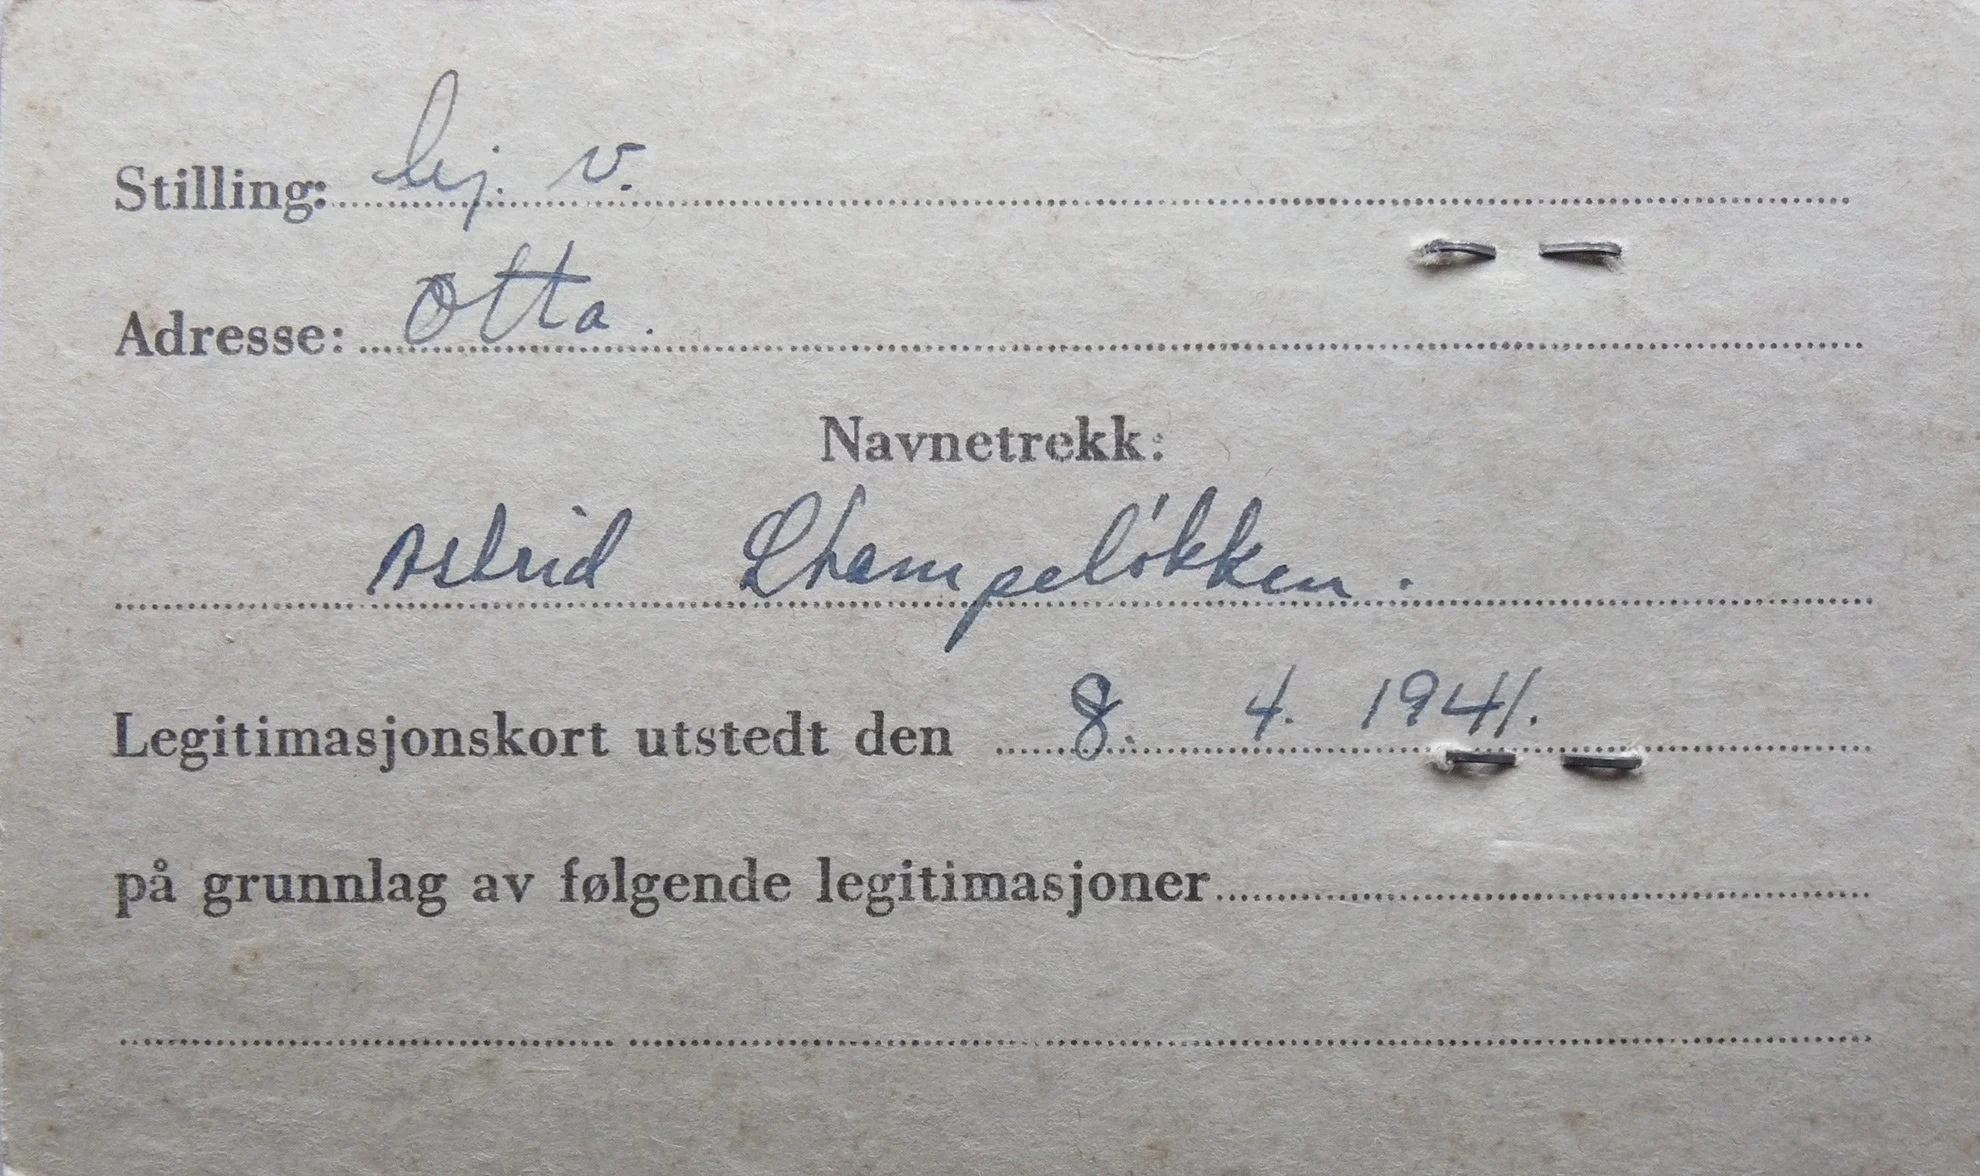 Stilling: hj. v.
Adresse: Otta.
Navnetrekk:
Astrid Thampeløkken.
Legitimasjonskort utstedt den 8. 4. 1941.
på grunnlag av følgende legitimasjoner